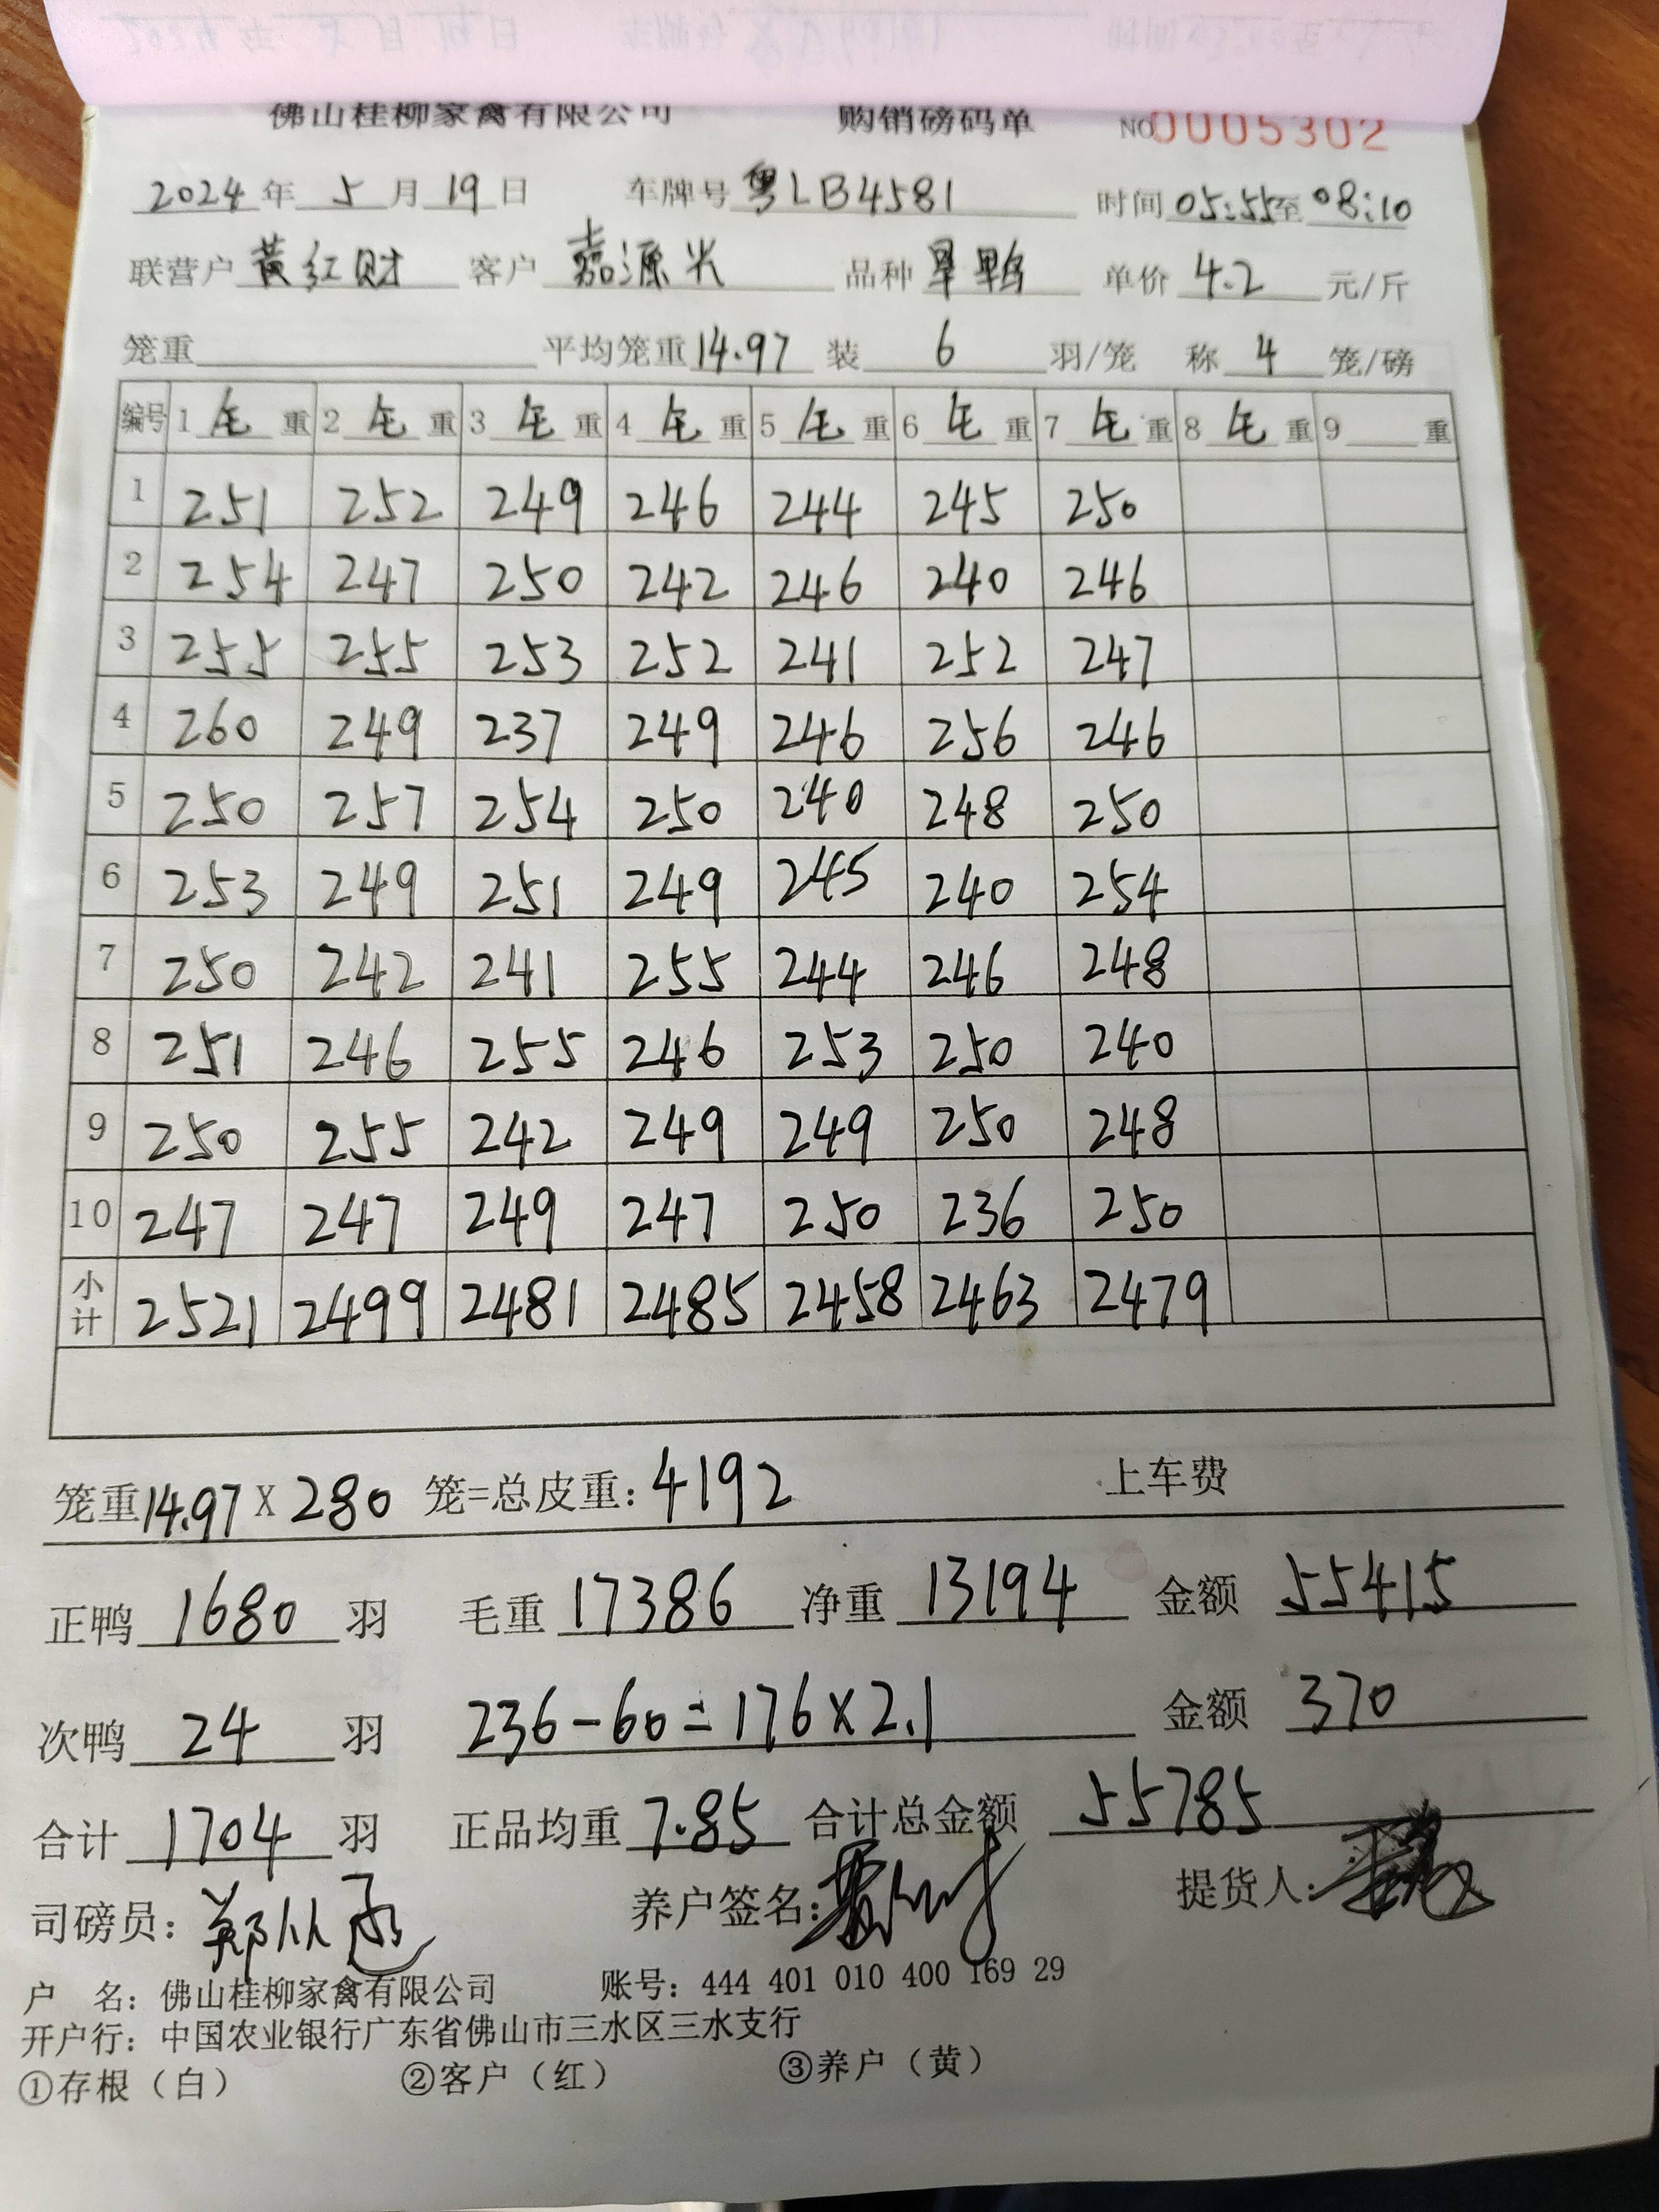 佛山桂柳家禽有限公司 购销磅码单 NO0005302
2024年 5月19日 车牌号 粤LB4581 时间 05:55至08:10
联营户 黄红财 客户 嘉源兴 品种 旱鸭 单价 4.2 元/斤
笼重 平均笼重 14.97 装 6 羽/笼 称 4 笼/磅
编号 1 毛 重 2 毛 重 3 毛 重 4 毛 重 5 毛 重 6 毛 重 7 毛 重 8 毛 重 9 重
1 251 252 249 246 244 245 250
2 254 247 250 242 246 240 246
3 255 255 253 252 241 252 247
4 260 249 237 249 246 256 246
5 250 257 254 250 240 248 250
6 253 249 251 249 245 240 254
7 250 242 241 255 244 246 248
8 251 246 255 246 253 250 240
9 250 255 242 249 249 250 248
10 247 247 249 247 250 236 250
小计 2521 2499 2481 2485 2458 2463 2479
笼重14.97 X 280 笼=总皮重: 4192 上车费
正鸭 1680 羽 毛重 17386 净重 13194 金额 55415
次鸭 24 羽 236-60=176×2.1 金额 370
合计 1704 羽 正品均重 7.85 合计总金额 55785
司磅员: 郑从 养户签名: 提货人:
户 名: 佛山桂柳家禽有限公司 账号: 444 401 010 400 169 29
开户行: 中国农业银行广东省佛山市三水区三水支行
①存根（白） ②客户（红） ③养户（黄）